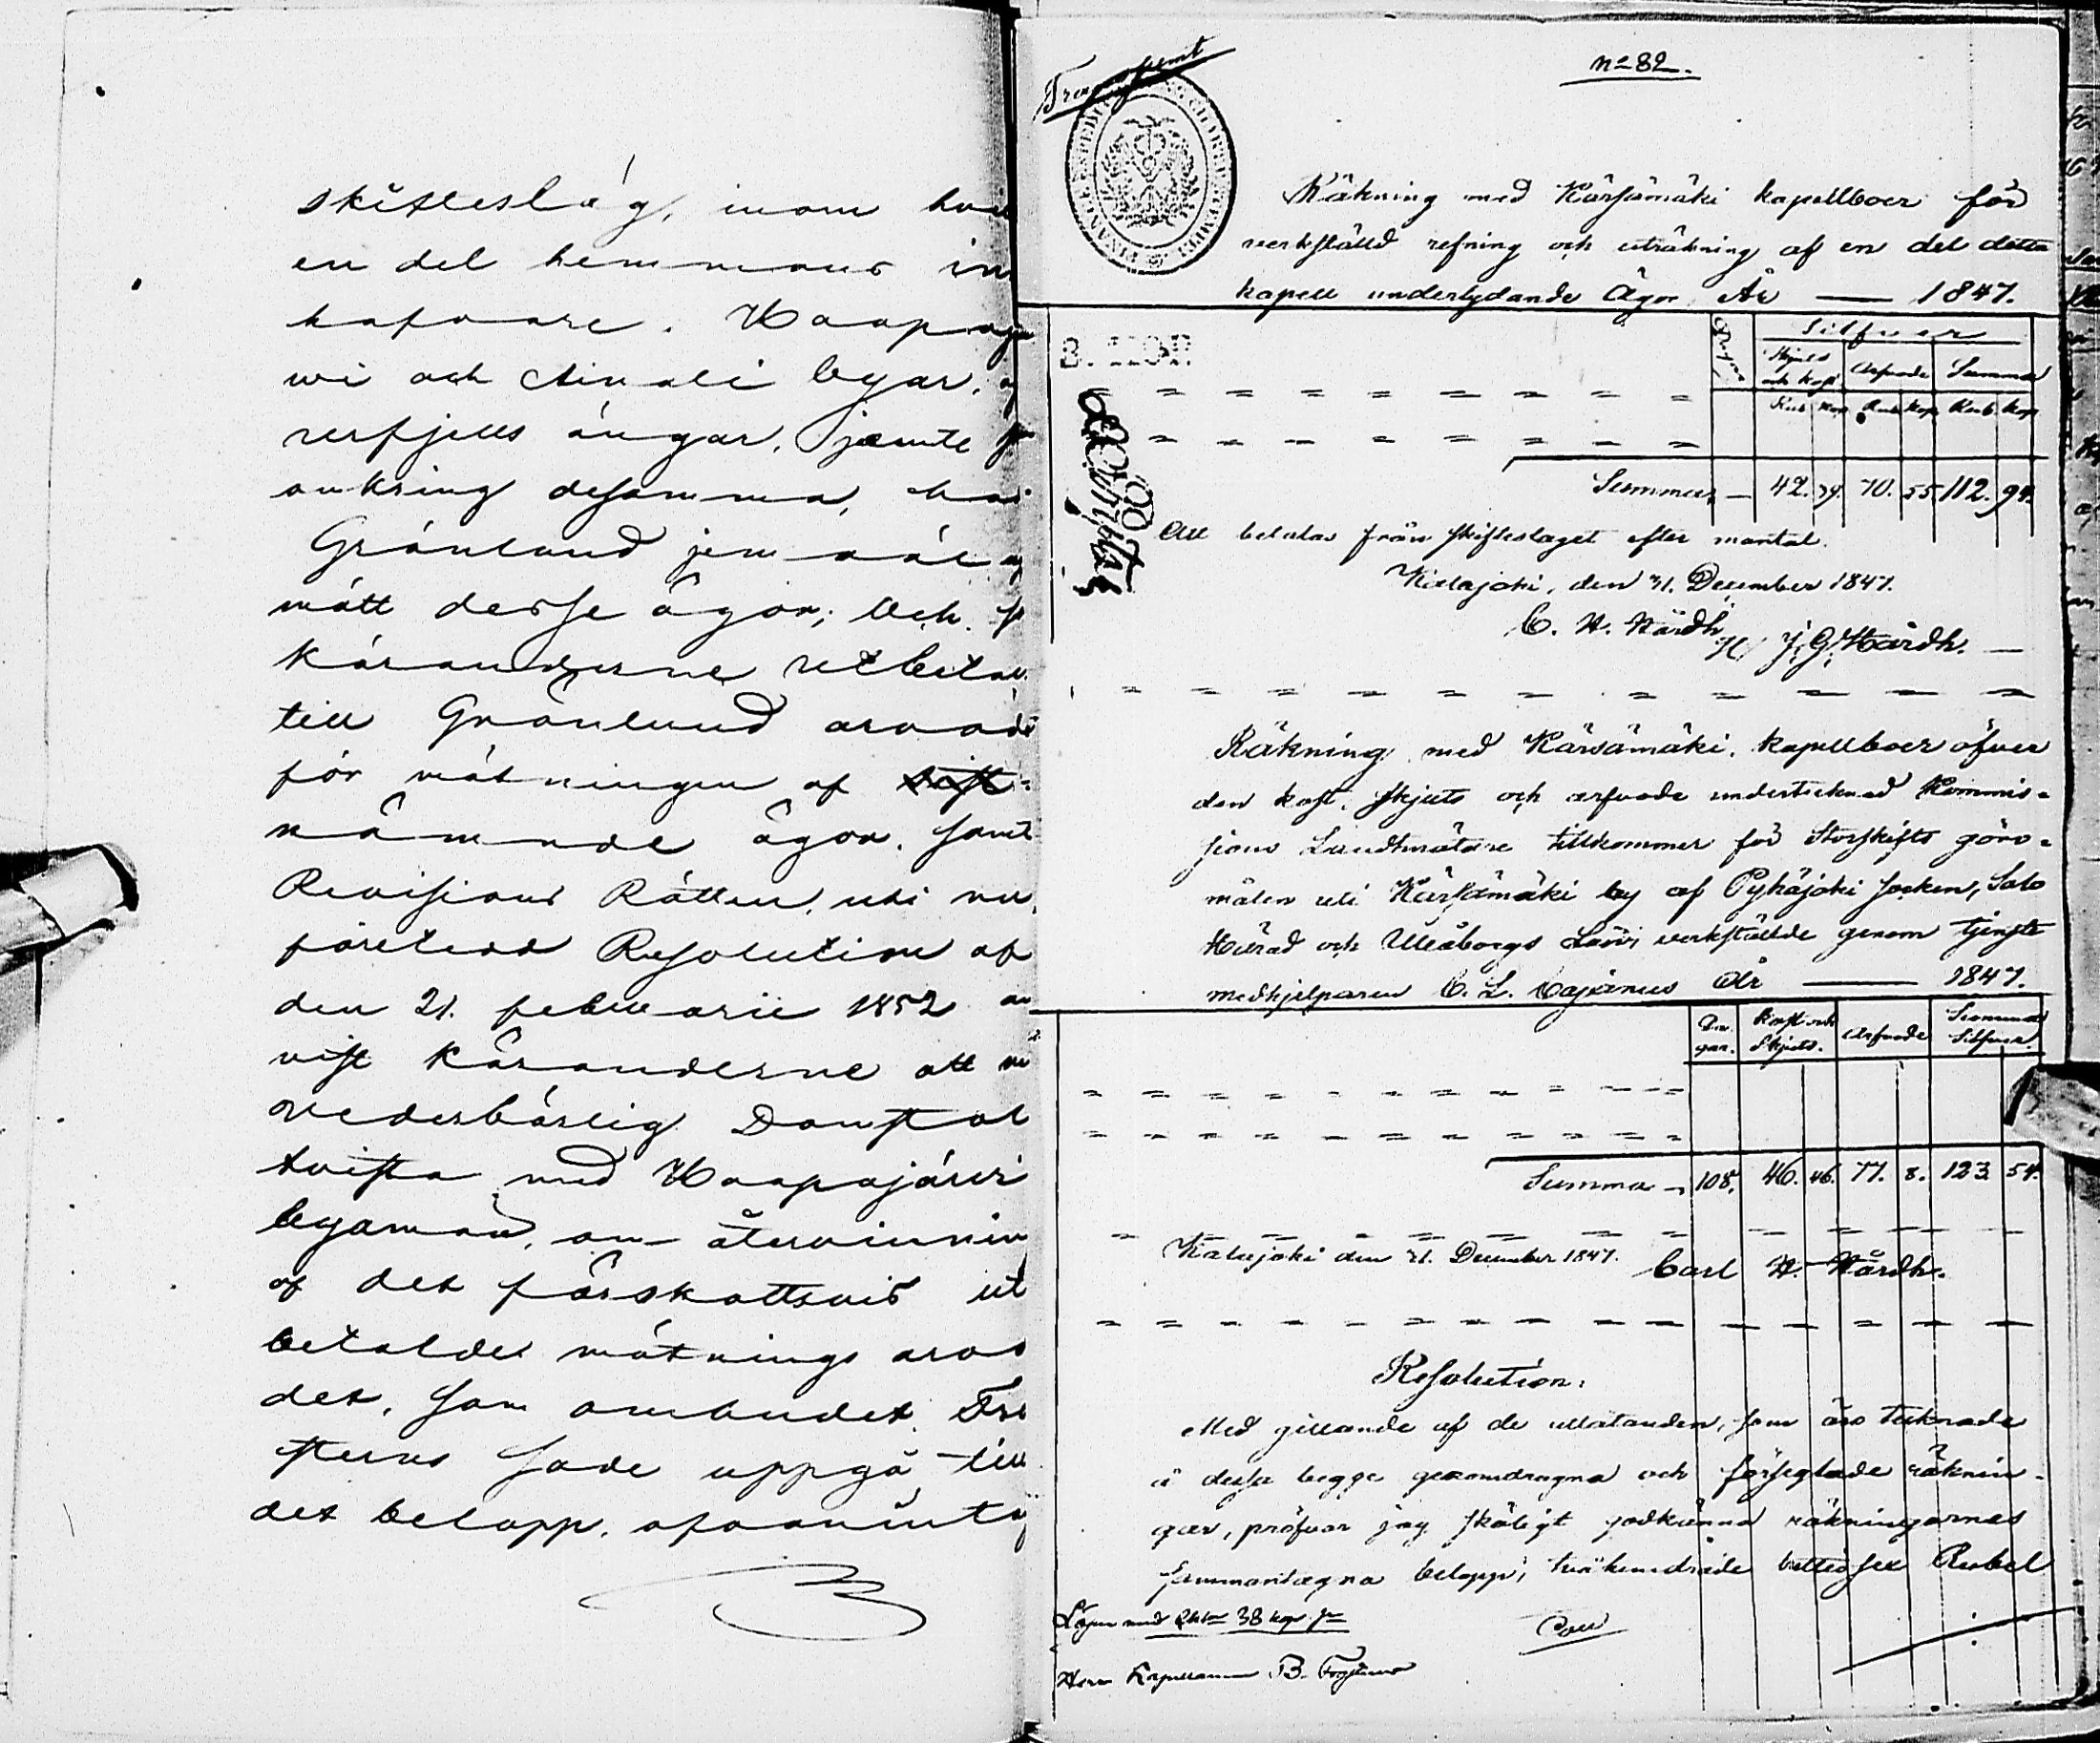 skifteslag, inom
en del hemmans in
hafvare. Haapaj
wi och Ainali byar,
rerfjells ängar, jemte
omkring desamma, har
Grönlund jemväl
mätt desse ägor; Och
Käranderne utbetal
till Grönlund arvode
för mätningen af sist-
nämnde ägor, samt
Revisions Rätten, uti
företedd Resolution af
den 21. februarii 1852 an
vist Käranderne att
vederbörlig Domstol
tvista med Haapajärvi
byamän, om återvinnin
af det förskottsvis ut
betalde mätnings arvo
det, som ombudet
sade uppgå till
det belopp,
Transsumt
No 82.
Räkning med Kärsämäki kapellboer för
verkställd refning och uträkning af en del detta
kapell underlydande Ägor År — 1847.
Silfver
Skjuts och kost Arfvode Summa
Rub. kop. Rub. kop. Rub. kop.
Summa — 42. 39. 70. 55. 112. 94.
Att betalas från skifteslaget efter mantal.
Kalajoki, den 31. December 1847.
C. H. Hårdh
J. G. Hårdh.
Räkning med Kärsämäki kapellboer öfver
den kost, skjuts och arfvode undertecknad Kommis-
sions Landtmätare tillkommer för Storskifts göro-
målen uti Kärsämäki by af Pyhäjoki Socken, Salo
Härad och Uleåborgs Län, verkställde genom tjenste
medhjelparen C. L. Cajanus År — 1847.
Da-gar. Kost och Skjuts. Arfvode Summa Silfver.
Summa — 108. 46. 46. 77. 8. 123 54.
Kalajoki den 31. December 1847. Carl H. Hårdh.
Resolution:
Med gillande af de utlåtanden, som äro tecknade
å dessa begge genomdragna och förseglade räknin-
gar, pröfvar jag skäligt godkänna räkningarnas
sammantagna belopp, tvåhundrade trettiosex Rubel
38 kop.
Herr Kapellanen B.